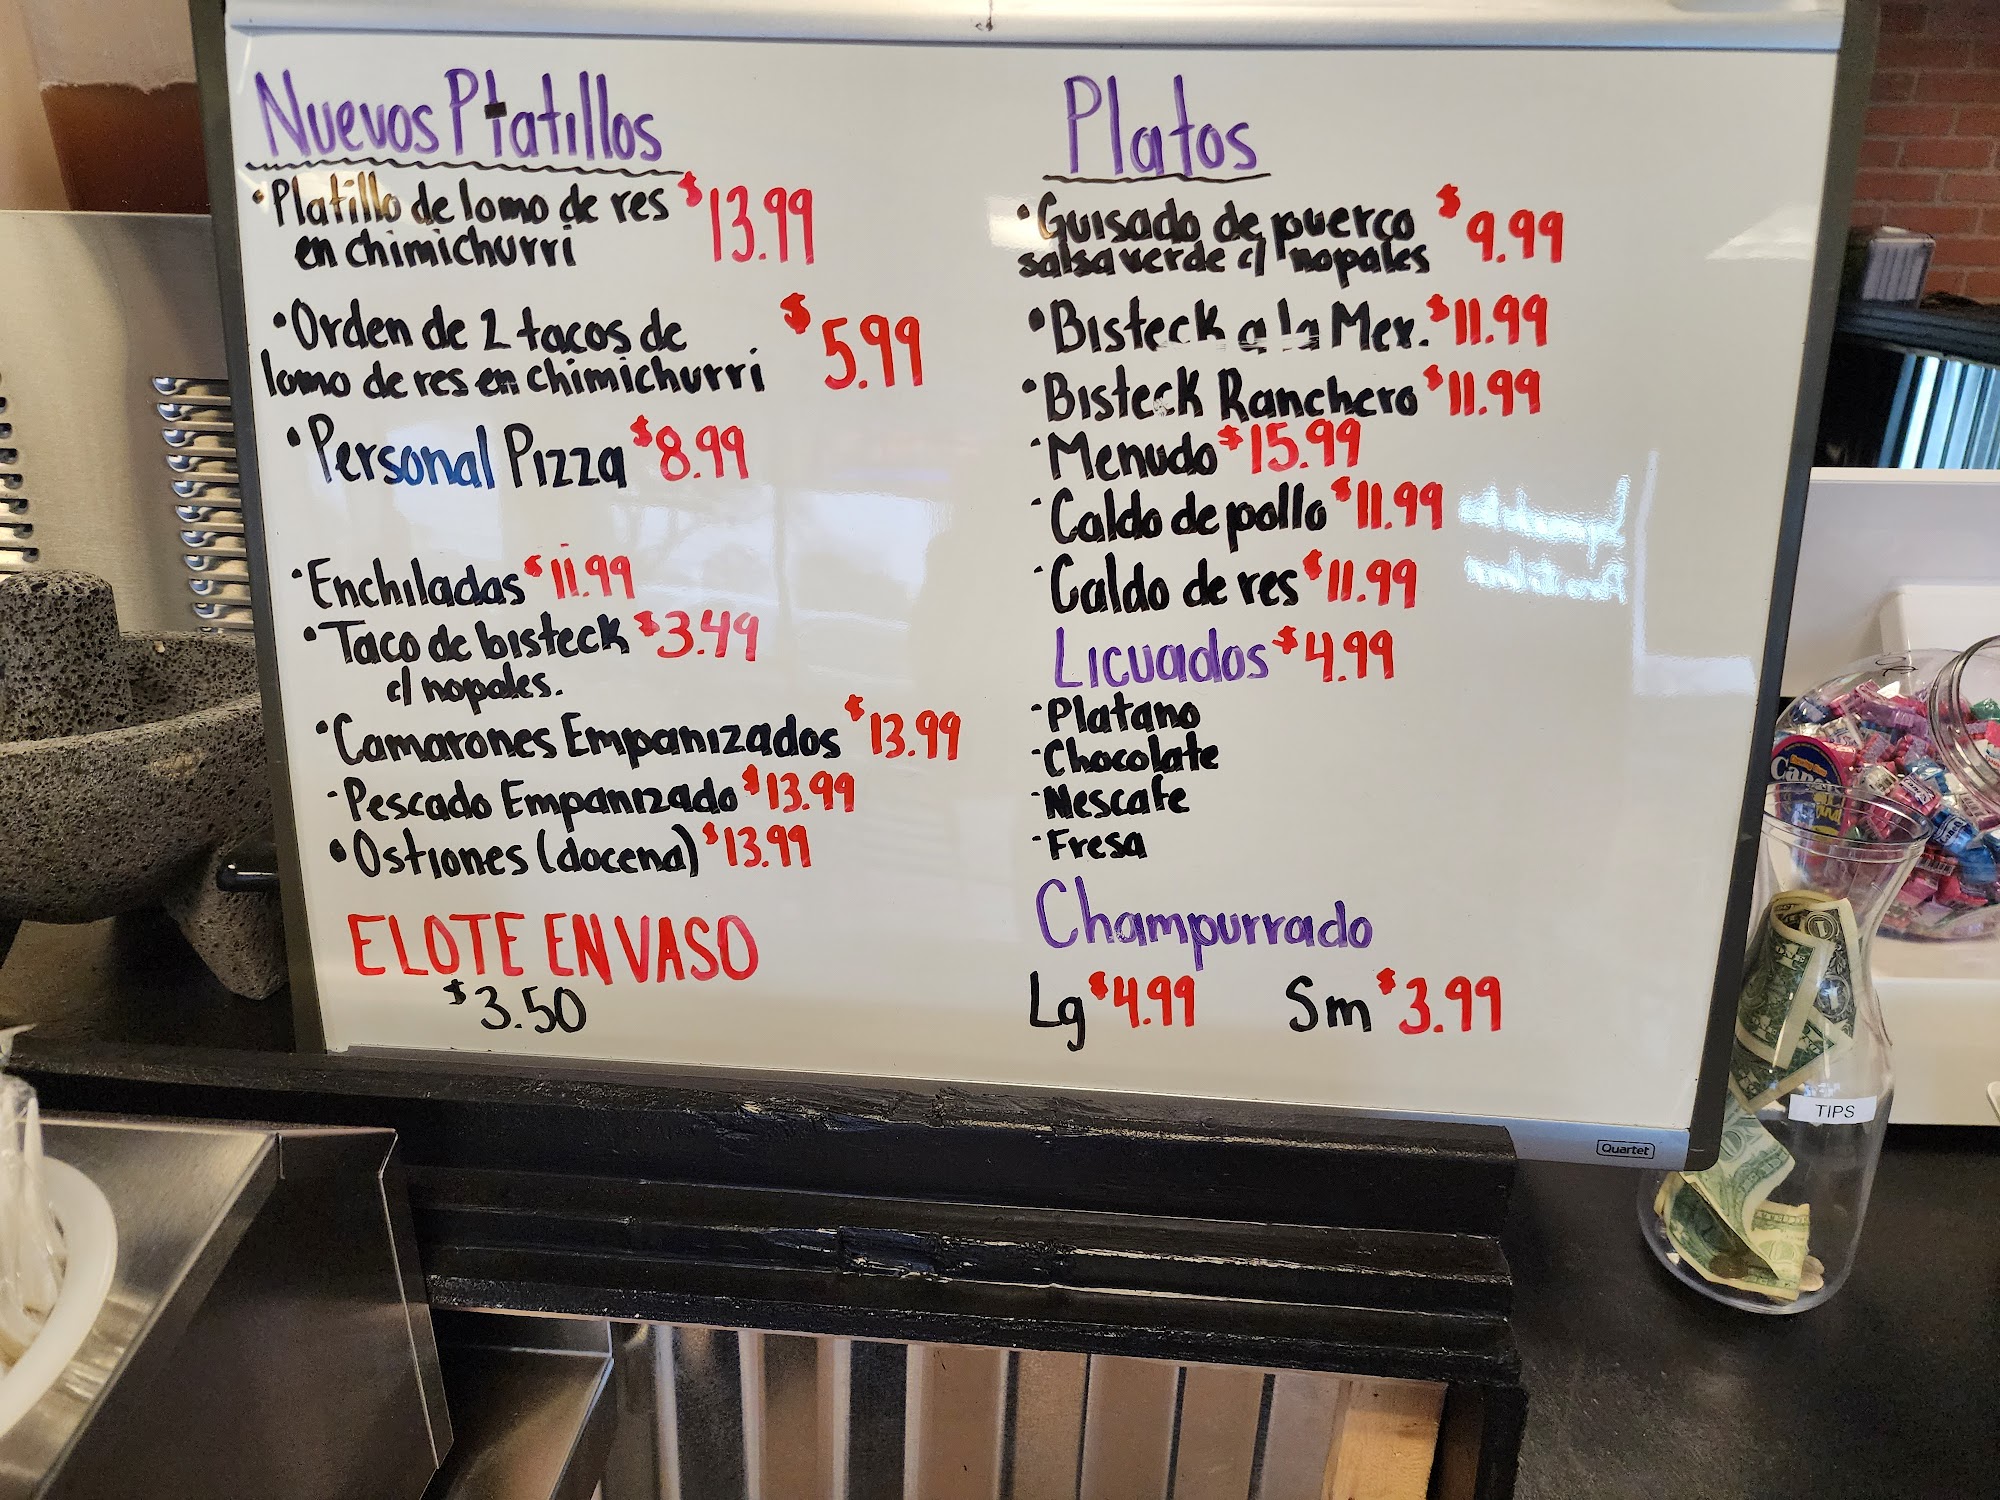 Nuevos Platillos
• Platillo de lomo de res $13.99
en chimichurri
• Orden de 2 tacos de $5.99
lomo de res en chimichurri
• Personal Pizza $8.99
• Enchiladas $11.99
• Taco de bisteck $3.49
c/ nopales.
• Camarones Empanizados $13.99
- Pescado Empanizado $13.99
• Ostiones (docena) $13.99
ELOTE EN VASO
$3.50
Platos
• Guisado de puerco $9.99
salsa verde c/ nopales
• Bisteck a la Mex. $11.99
• Bisteck Ranchero $11.99
- Menudo $15.99
- Caldo de pollo $11.99
- Caldo de res $11.99
Licuados $4.99
- Platano
- Chocolate
- Nescafe
- Fresa
Champurrado
Lg $4.99 Sm $3.99
Quartet
TIPS